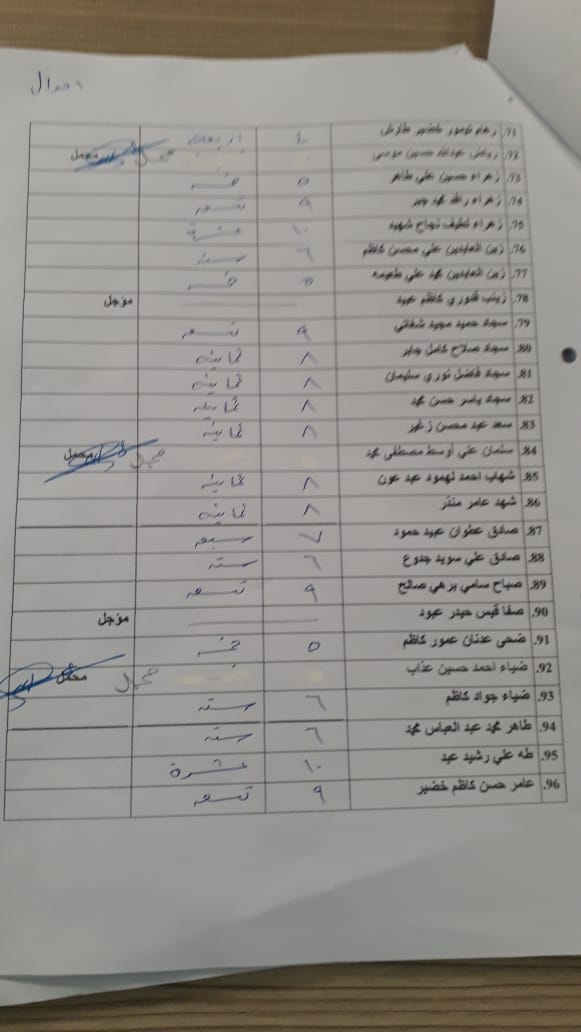 71. رهام تيمور خضير طارش ٤ اربعة
72. عبدالله حسين موسى محمل محمل
73. زهراء حسين علي طاهر ٥ خمسة
74. زهراء محمد ٩ تسعة
75. زهراء لطيف نجاح شهيد ١٠ عشرة
76. زين العابدين علي محسن كاظم ٦ ستة
77. زين العابدين محمد علي ٥ خمسة
78. زينب كاظم عبيد مؤجل
79. سجاد حميد مجيد ٩ تسعة
80. سجاد صلاح كامل جابر ٨ ثمانية
81. سجاد فاضل نوري سليمان ٨ ثمانية
82. سجاد ياسر حسن محمد ٨ ثمانية
83. سعد عبد محسن زغير ٨ ثمانية
84. سلمان علي اوسط مصطفى محمد محمل محمل
85. شهاب احمد عبد عون ٨ ثمانية
86. شهد عامر منذر ٨ ثمانية
87. صادق عطوان عبيد حمود ٧ سبعة
88. صادق علي سويد جدوع ٦ ستة
89. صباح سامي برهي صالح ٩ تسعة
90. صفا قيس حيدر عبود مؤجل
91. ضحى عدنان عمور كاظم ٥ خمسة
92. ضياء احمد حسين عذاب محمل محمل
93. ضياء جواد كاظم ٦ ستة
94. طاهر محمد عبد العباس محمد ٦ ستة
95. طه علي رشيد عبد ١٠ عشرة
96. عامر حسن كاظم خضير ٩ تسعة